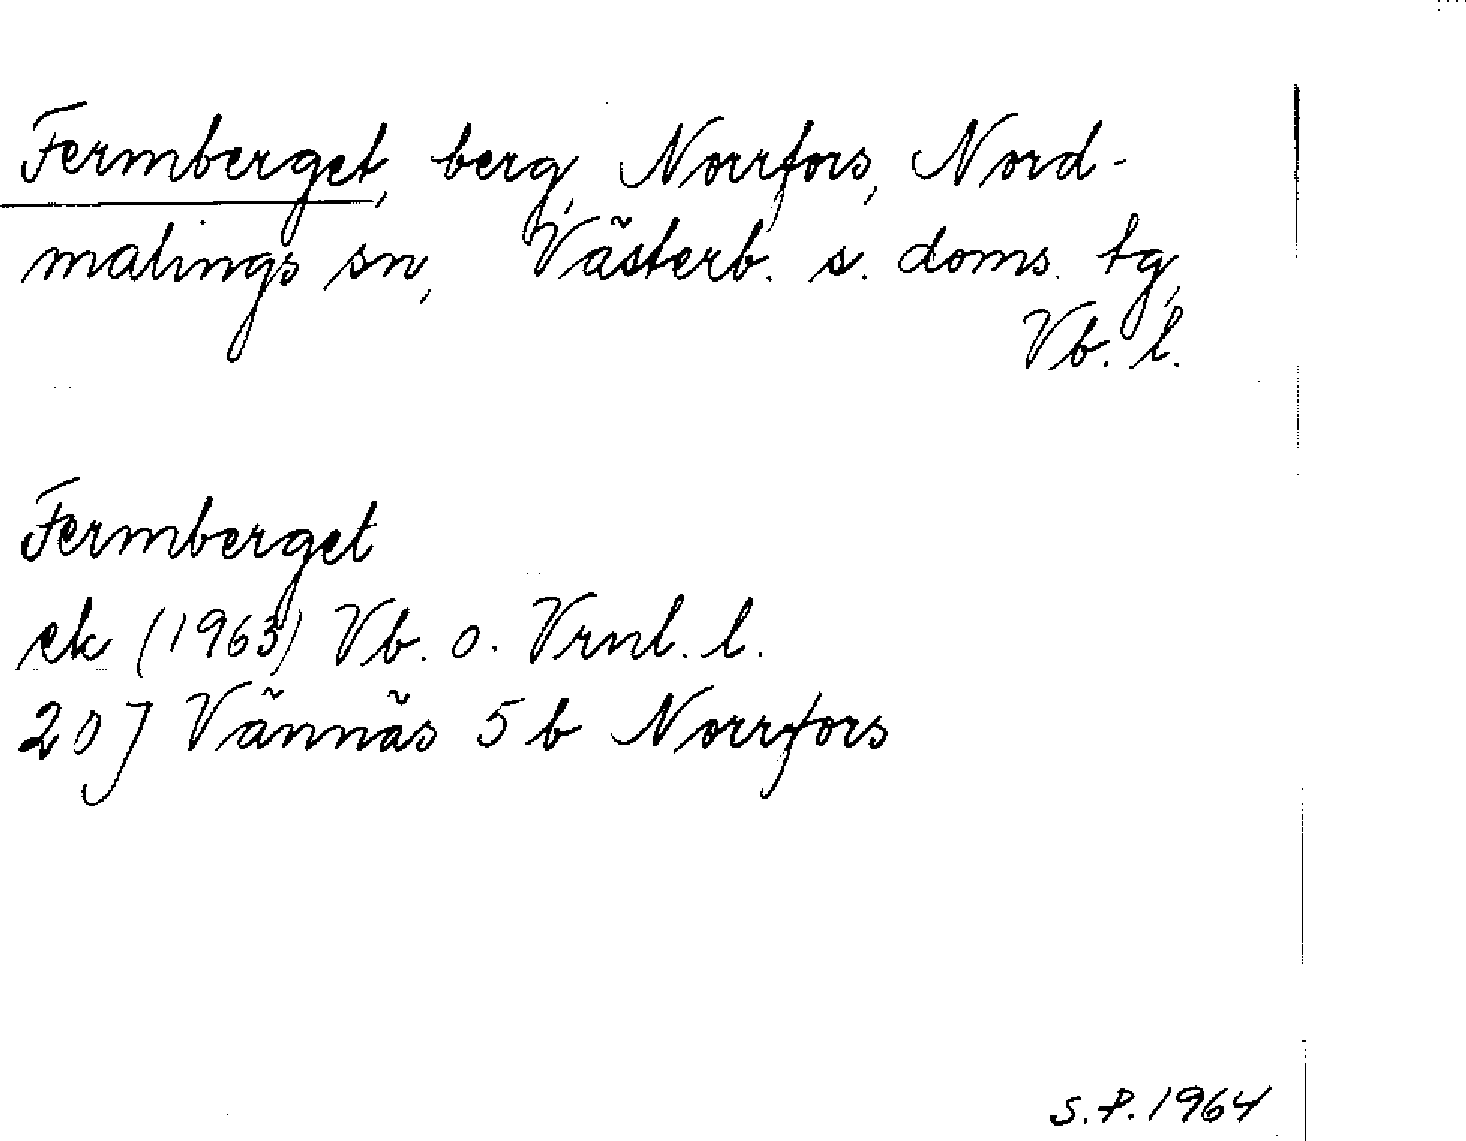 Fermberget, berg, Norrfors, Nord-
malings sn, Västerb. s. doms. tg,
Vb. l.
Fermberget
ek (1963) Vb. o. Vrnl. l.
20 J Vännäs 5 b Norrfors
S.P. 1964